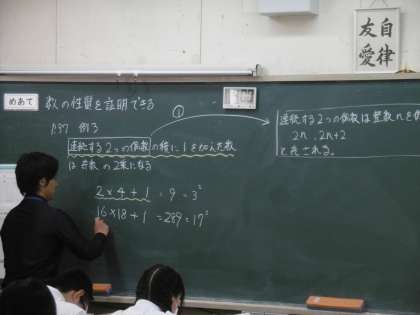 自律
友愛
めあて 数の性質を証明できる
P37 例3
連続する2つの偶数の積に1を加えた数
は奇数の2乗になる
①
2×4+1 = 9 = 3²
16×18+1 = 289 = 17²
連続する2つの偶数は整数nを使
2n, 2n+2
と表される。